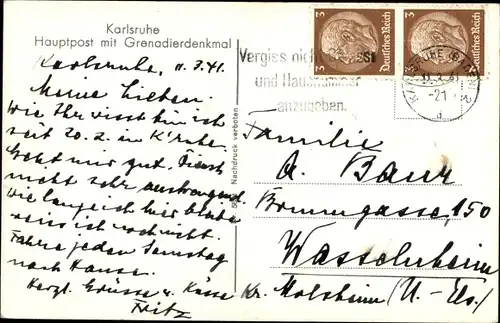 Karlsruhe
Hauptpost mit Grenadierdenkmal
Karlsruhe, 11.3.41.
Meine Lieben.
Wie Ihr wisst bin ich
seit 20.2. in K'ruhe.
Geht mir gut. Dienst
nicht sehr anstrengend.
Wie lange ich hier bleibe
weiss ich noch nicht.
Fahre jeden Samstag
nach Hause.
Herzl. Grüsse u. Küsse
Fritz
Nachdruck verboten
3 Deutsches Reich
3 Deutsches Reich
Vergiss nicht
und Hausnummer
anzugeben.
KARLSRUHE (BADEN) 2
-21
d
Familie
A. Baur
150
Wasselnheim
Kr. Molsheim (U.-Els.)